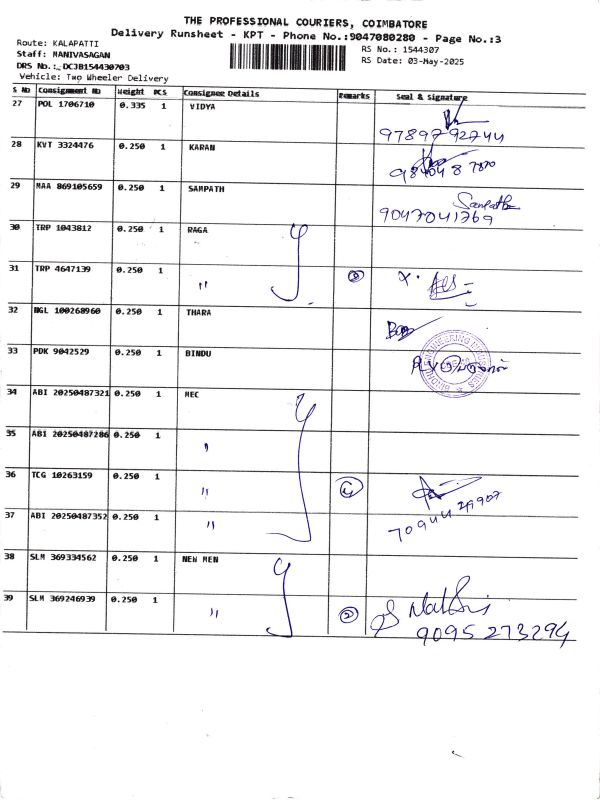 THE PROFESSIONAL COURIERS, COIMBATORE
Delivery Runsheet - KPT - Phone No.:9047080280 - Page No.:3
Route: KALAPATTI
RS No.: 1544307
Staff: MANIVASAGAN
RS Date: 03-May-2025
DRS No.: DCJB154430703
Vehicle: Two Wheeler Delivery
S No Consignment No Weight PCS Consignee Details Remarks Seal & Signature
27 POL 1706710 0.335 1 VIDYA
9789792744
28 KVT 3324476 0.250 1 KARAN
9840487870
29 MAA 869105659 0.250 1 SAMPATH Sampath
9047041769
30 TRP 1043812 0.250 1 RAGA
31 TRP 4647139 0.250 1 " 2
32 NGL 100268960 0.250 1 THARA
33 PDK 9042529 0.250 1 BINDU
34 ABI 20250487321 0.250 1 MEC
35 ABI 20250487286 0.250 1 "
36 TCG 10263159 0.250 1 " 4
37 ABI 20250487352 0.250 1 "
38 SLM 369334562 0.250 1 NEW MEN
39 SLM 369246939 0.250 1 " 2
9095273294